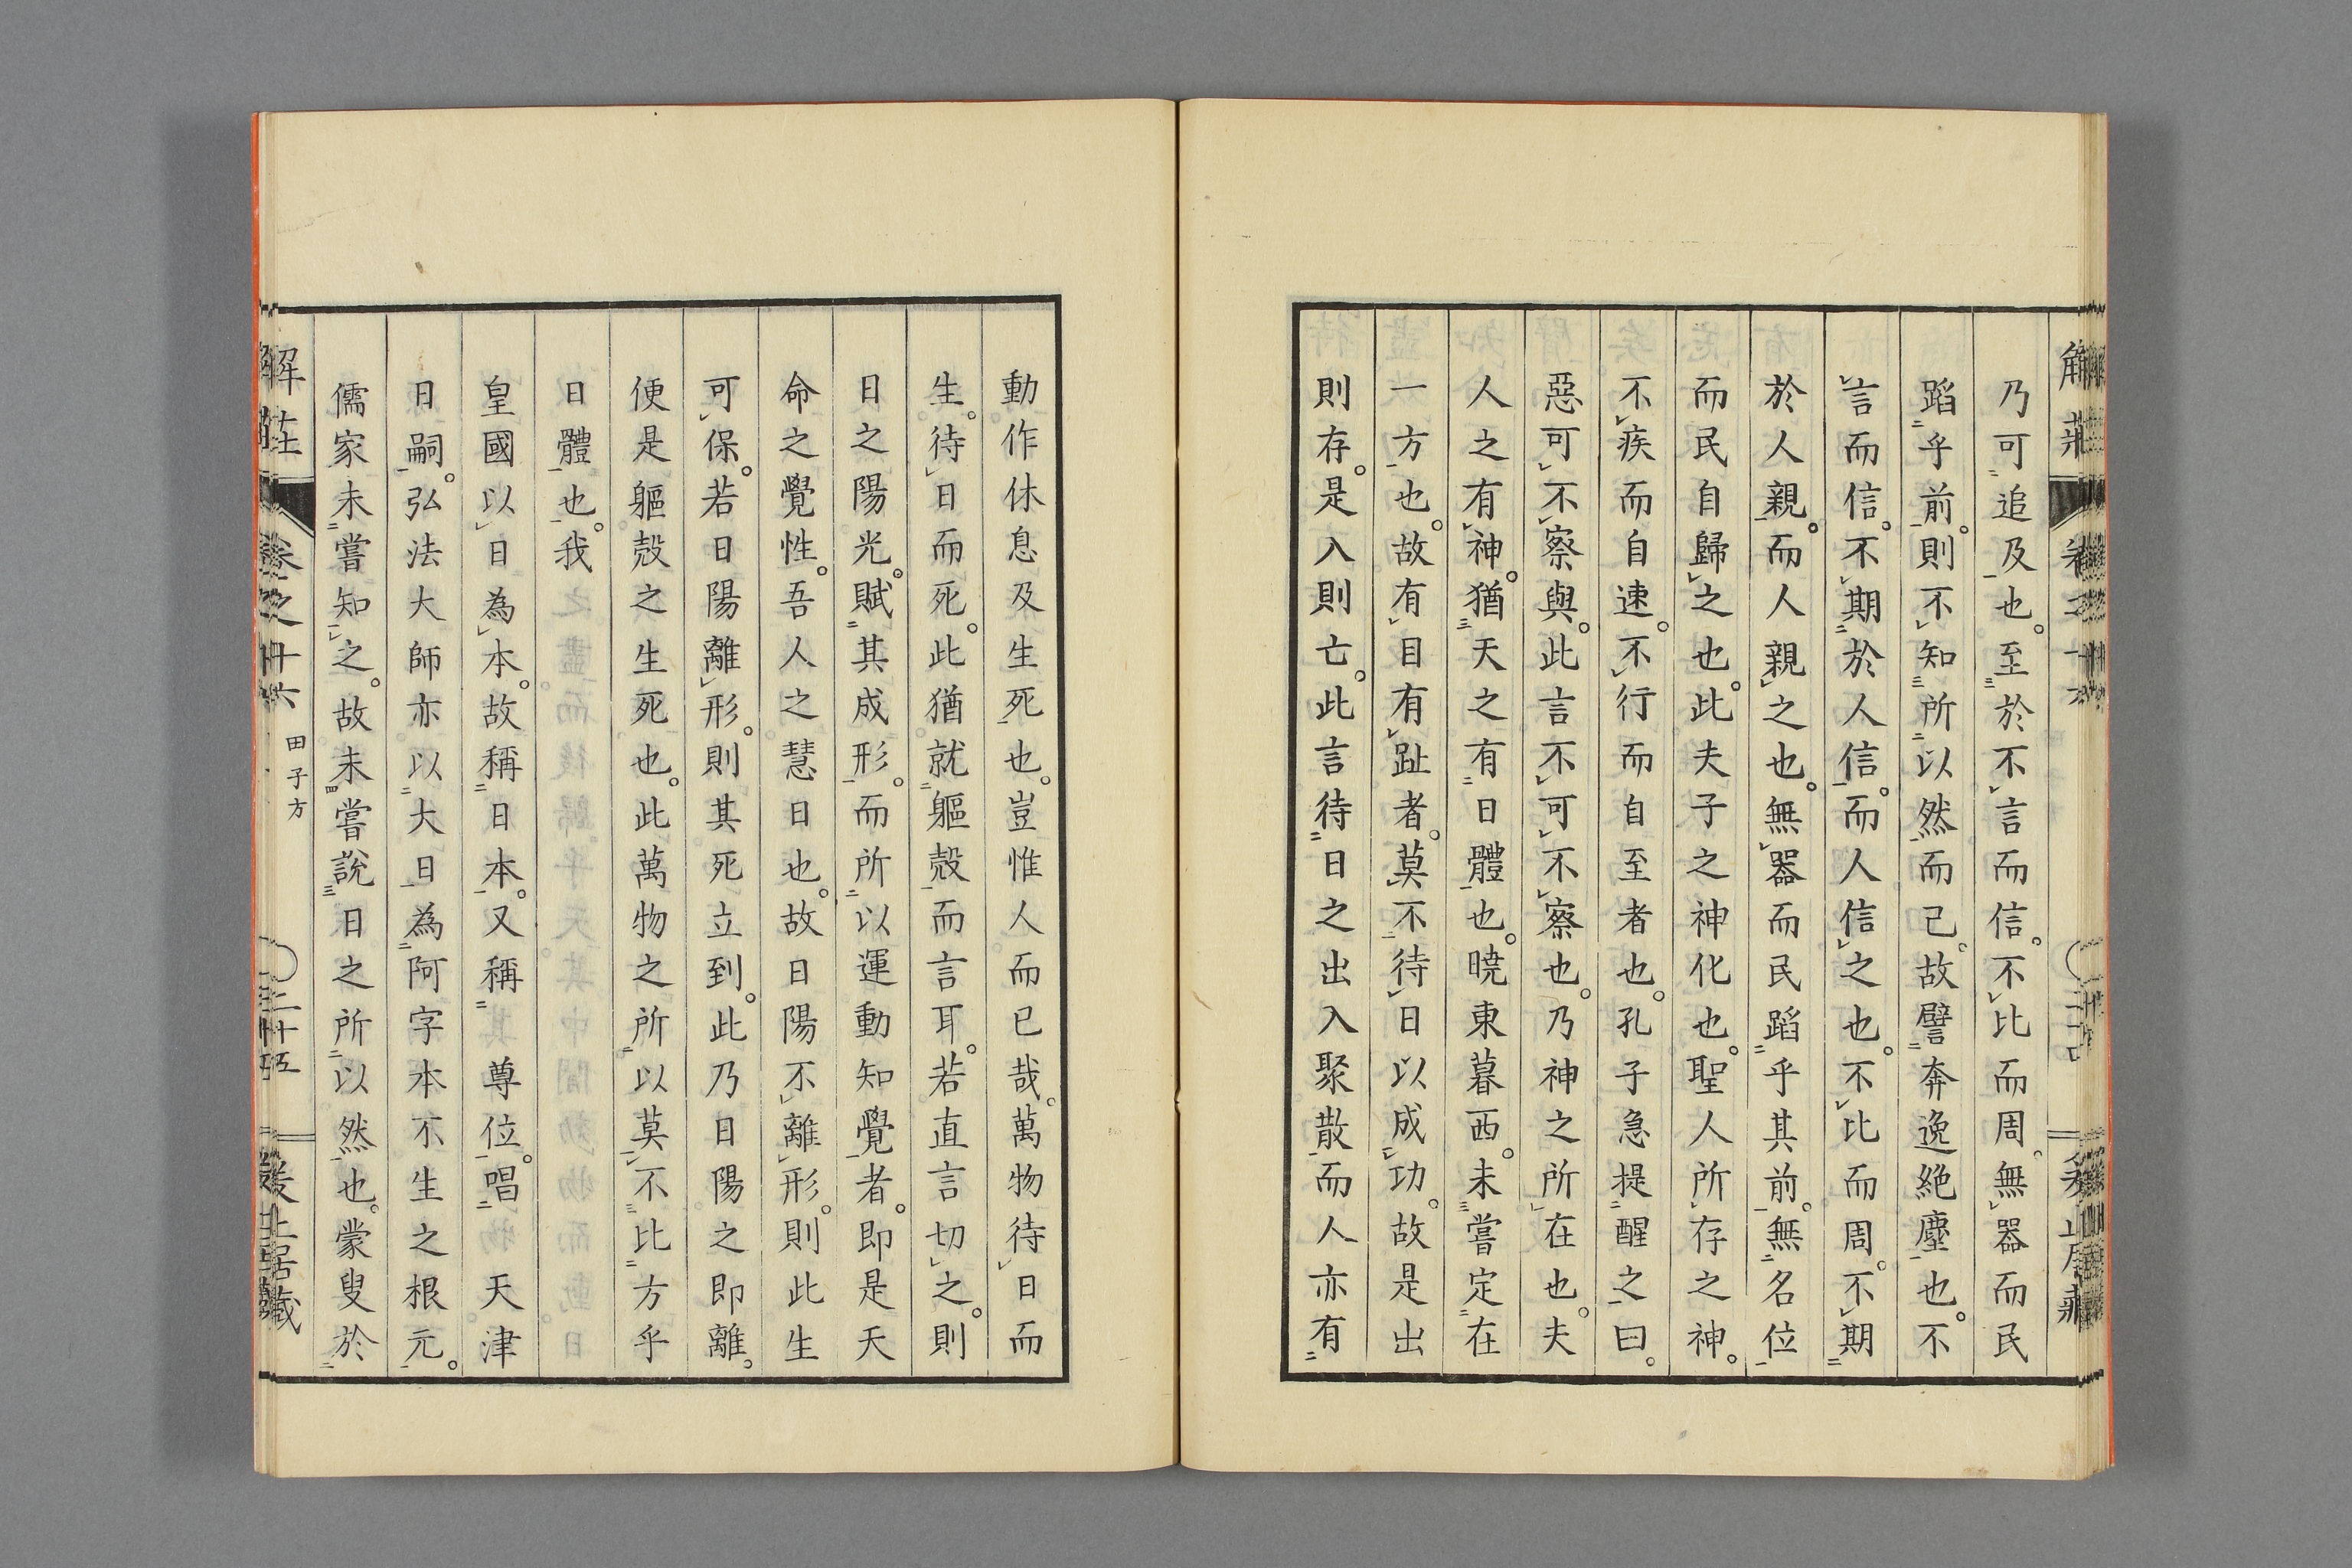 乃可追及也。至於不言而信。不比而周。無器而民
蹈乎前。則不知所以然而已。故譬奔逸絶塵也。不
言而信。不期於人信。而人信之也。不比而周。不期
於人親。而人親之也。無器而民蹈乎其前。無名位
而民自歸之也。此夫子之神化也。聖人所存之神。
不疾而自速。不行而自至者也。孔子急提醒之曰。
惡可不察與。此言不可不察也。乃神之所在也。夫
人之有神。猶天之有日體也。曉東暮西。未嘗定在
一方也。故有目有趾者。莫不待日以成功。故是出
則存。是入則亡。此言待日之出入聚散而人亦有
動作休息及生死也。豈惟人而已哉。萬物待日而
生。待日而死。此猶就軀殼而言耳。若直言切之。則
日之陽光。賦其成形。而所以運動知覺者。即是天
命之覺性。吾人之慧日也。故日陽不離形。則此生
可保。若日陽離形。則其死立到。此乃日陽之即離。
便是軀殼之生死也。此萬物之所以莫不比方乎
日體也。我
皇國以日為本。故稱日本。又稱 尊位。唱 天津
日嗣。弘法大師亦以大日為阿字本不生之根元。
儒家未嘗知之。故未嘗說日之所以然也。蒙叟於
解莊 卷之十六 田子方 二十五